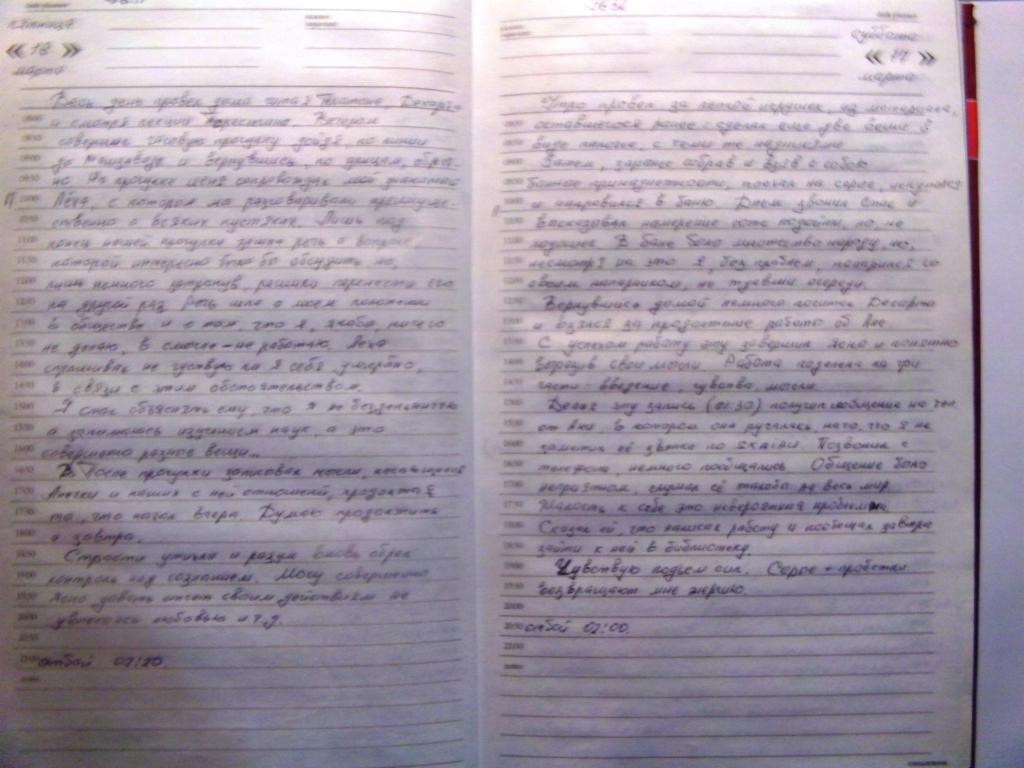 пятница
« 18 »
марта
Весь день провел дома читая Платона, Декарта
и смотря лекции Вечером
совершил прогулку дойдя по линии
до и вернувшись, по улицам, обрат-
но. На прогулке меня сопровождал мой знакомый
Лёха, с которым мы разговаривали преимуще-
ственно о всяких пустяках. Лишь под
конец нашей прогулки зашла речь о вопросе
который интересно было бы обсудить но,
лишь немного затронув, решили перенести его
на другой раз. Речь шла о моем положении
в обществе и о том, что я, якобы, ничего
не делаю, в смысле - не работаю. Лёха
спрашивал не чувствую ли я себя ущербно,
в связи с этим обстоятельством.
Я стал объяснять ему, что я не бездельничаю
а занимаюсь изучением наук, а это
совершенно разные вещи...
После прогулки записывал мысли, касающиеся
Анечки и наших с ней отношений, продолжая
то, что начал вчера. Думаю продолжить
и завтра.
Страсти утихли и разум вновь обрел
контроль над сознанием. Могу совершенно
ясно давать отчет своим действиям не
увлекаясь любовью и т.д.
отбой 02:20.
суббота
марта
Утро провел за лепкой игрушек, из материала,
оставшегося ранее сделал еще две
виде палочек, с теми же надписями.
Затем, заранее собрав и взяв с собою
банные принадлежности, поехал на озеро, искупался
и направился в баню. Днем звонил Стас и
высказывал намерение тоже подойти, но, не
подошел. В бане было множество народу, но,
несмотря на это я, без проблем, попарился со
своим напарником, не очереди.
Вернувшись домой немного почитал Декарта
и взялся за продолжение работы об Ане.
С успехом работу эту завершил ясно и понятно
выразив свои мысли. Работа поделена на три
части: введение, чувства, мысли.
Делая эту запись (01:30) получил сообщение на тел.
от Ани, в котором она ругалась на то, что я не
заметил её звонка по скайпу. Позвонил с
телефона, немного пообщались. Общение было
неприятном, слушал её жалобы на весь мир.
Жалость к себе это невероятная проблема.
Сказал ей, что написал работу и пообещал завтра
зайти к ней в библиотеку.
Чувствую подъем сил. Озеро + пробежки
возвращают мне энергию.
отбой 02:00.